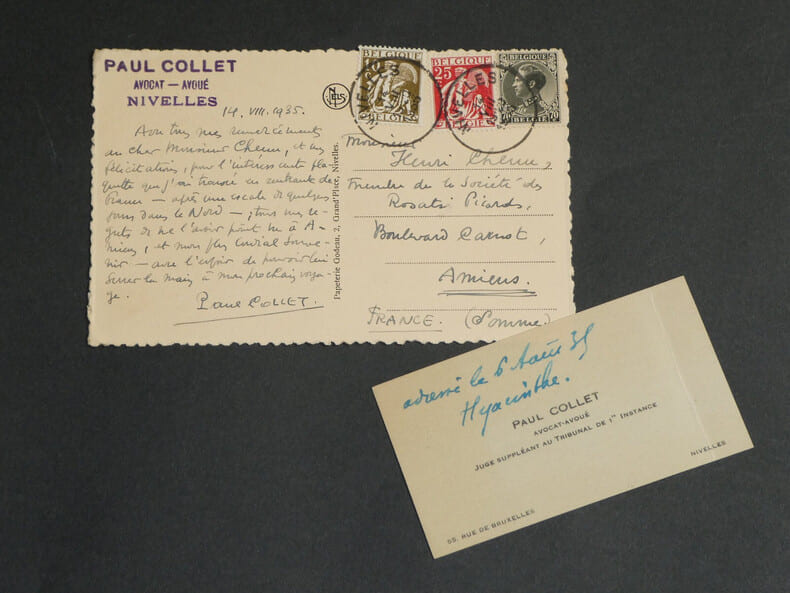 PAUL COLLET
AVOCAT — AVOUÉ
NIVELLES
14. VIII. 1935.
Avec mes remerciements
au cher Monsieur Chenu, et mes
félicitations, pour l'intéressante pla-
quette que j'ai trouvée en rentrant de
France — après une escale de quelques
jours dans le Nord —; tous mes re-
grets de ne l'avoir point vu à A-
miens, et mon plus cordial souve-
nir — avec l'espoir de pouvoir lui
serrer la main à mon prochain voya-
ge.
Paul COLLET.
NELS
Papeterie Godeau, 2, Grand'Place, Nivelles.
BELGIQUE
10
BELGIE
BELGIQUE
25
BELGIE
BELGIQUE
70
70
NIVELLES
NIVELLES
Monsieur
Henri Chenu,
membre de la Société des
Rosati Picards,
Boulevard Carnot,
Amiens.
FRANCE. (Somme)
adressé le 6 Août 35
Hyacinthe.
PAUL COLLET
AVOCAT-AVOUÉ
JUGE SUPPLÉANT AU TRIBUNAL DE 1re INSTANCE
NIVELLES
55, RUE DE BRUXELLES